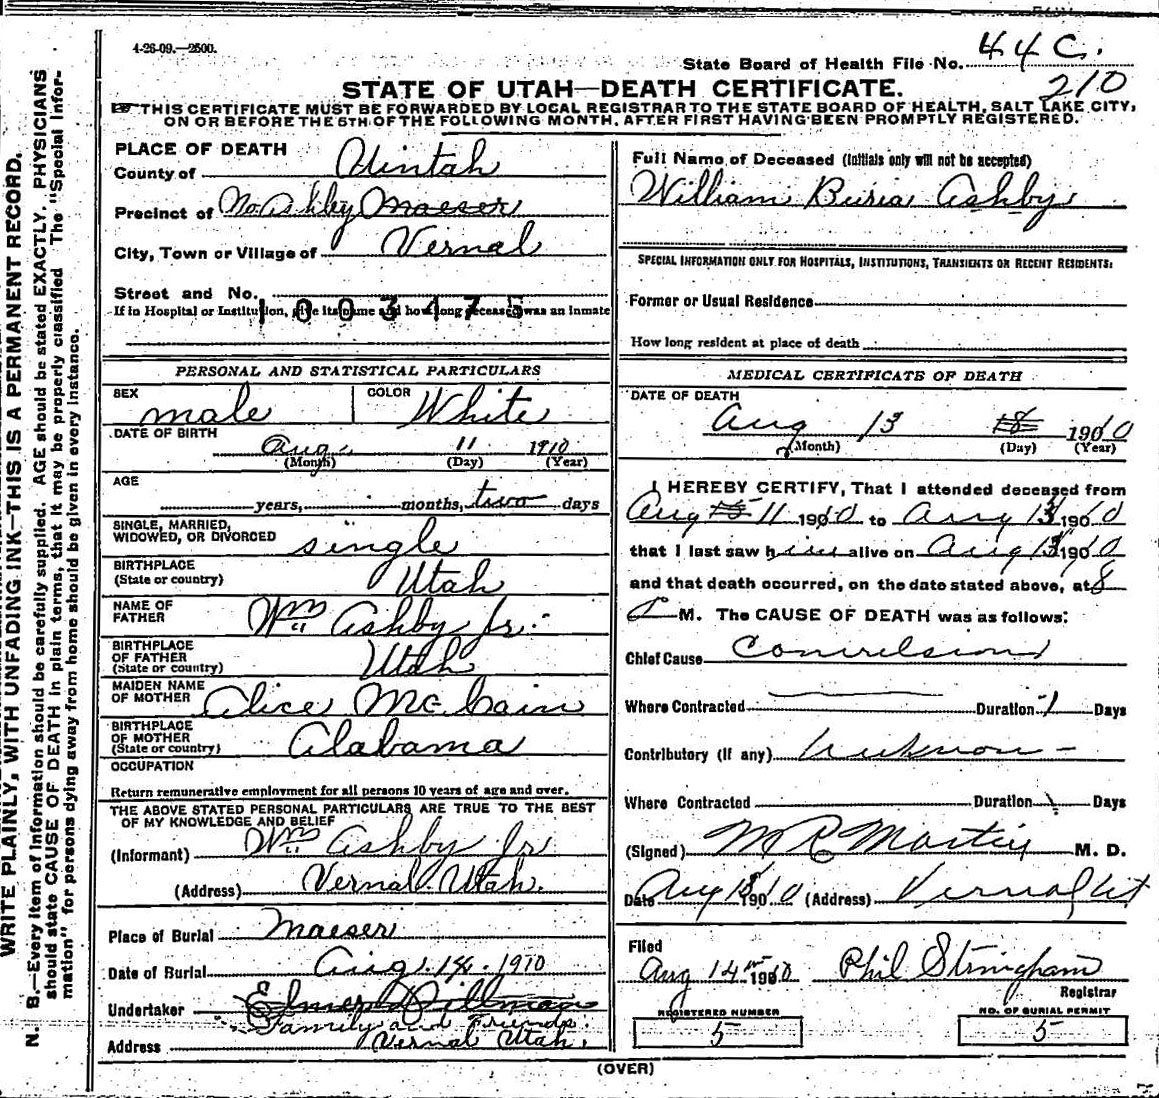 4-26-09.—2500.
44C.
State Board of Health File No.
210
STATE OF UTAH—DEATH CERTIFICATE.
THIS CERTIFICATE MUST BE FORWARDED BY LOCAL REGISTRAR TO THE STATE BOARD OF HEALTH, SALT LAKE CITY,
ON OR BEFORE THE 5TH OF THE FOLLOWING MONTH, AFTER FIRST HAVING BEEN PROMPTLY REGISTERED.
WRITE PLAINLY, WITH UNFADING INK—THIS IS A PERMANENT RECORD.
N. B.—Every item of Information should be carefully supplied. AGE should be stated EXACTLY. PHYSICIANS
should state CAUSE OF DEATH in plain terms, that it may be properly classified. The "Special Infor-
mation" for persons dying away from home should be given in every instance.
PLACE OF DEATH
County of Uintah
Precinct of Ashby Maeser
City, Town or Village of Vernal
Street and No.
100347
If in Hospital or Institution, give its name and how long deceased was an inmate
PERSONAL AND STATISTICAL PARTICULARS
SEX male COLOR White
DATE OF BIRTH
Aug. 11 1910
(Month) (Day) (Year)
AGE
years, months, two days
SINGLE, MARRIED,
WIDOWED, OR DIVORCED single
BIRTHPLACE
(State or country) Utah
NAME OF
FATHER Wm Ashby Jr.
BIRTHPLACE
OF FATHER
(State or country) Utah
MAIDEN NAME
OF MOTHER Alice McCain
BIRTHPLACE
OF MOTHER
(State or country) Alabama
OCCUPATION
Return remunerative employment for all persons 10 years of age and over.
THE ABOVE STATED PERSONAL PARTICULARS ARE TRUE TO THE BEST
OF MY KNOWLEDGE AND BELIEF
(Informant) Wm Ashby Jr
(Address) Vernal. Utah.
Place of Burial Maeser
Date of Burial Aug. 14. 1910
Undertaker Elmer Pillman
Family and Friends.
Address Vernal Utah.
Full Name of Deceased (Initials only will not be accepted)
William Ashby
SPECIAL INFORMATION ONLY FOR HOSPITALS, INSTITUTIONS, TRANSIENTS OR RECENT RESIDENTS:
Former or Usual Residence
How long resident at place of death
MEDICAL CERTIFICATE OF DEATH
DATE OF DEATH
Aug 13 18 1910
(Month) (Day) (Year)
I HEREBY CERTIFY, That I attended deceased from
Aug 11 1910 to Aug 13 1910
that I last saw him alive on Aug 13 1910
and that death occurred, on the date stated above, at 8
M. The CAUSE OF DEATH was as follows:
Chief Cause Convulsions
Where Contracted Duration 1 Days
Contributory (if any) unknown
Where Contracted Duration Days
(Signed) M. D.
Date Aug 1910 (Address) Vernal Ut
Filed
Aug 14 1910 Phil Stringham
Registrar
REGISTERED NUMBER
5
NO. OF BURIAL PERMIT
5
(OVER)